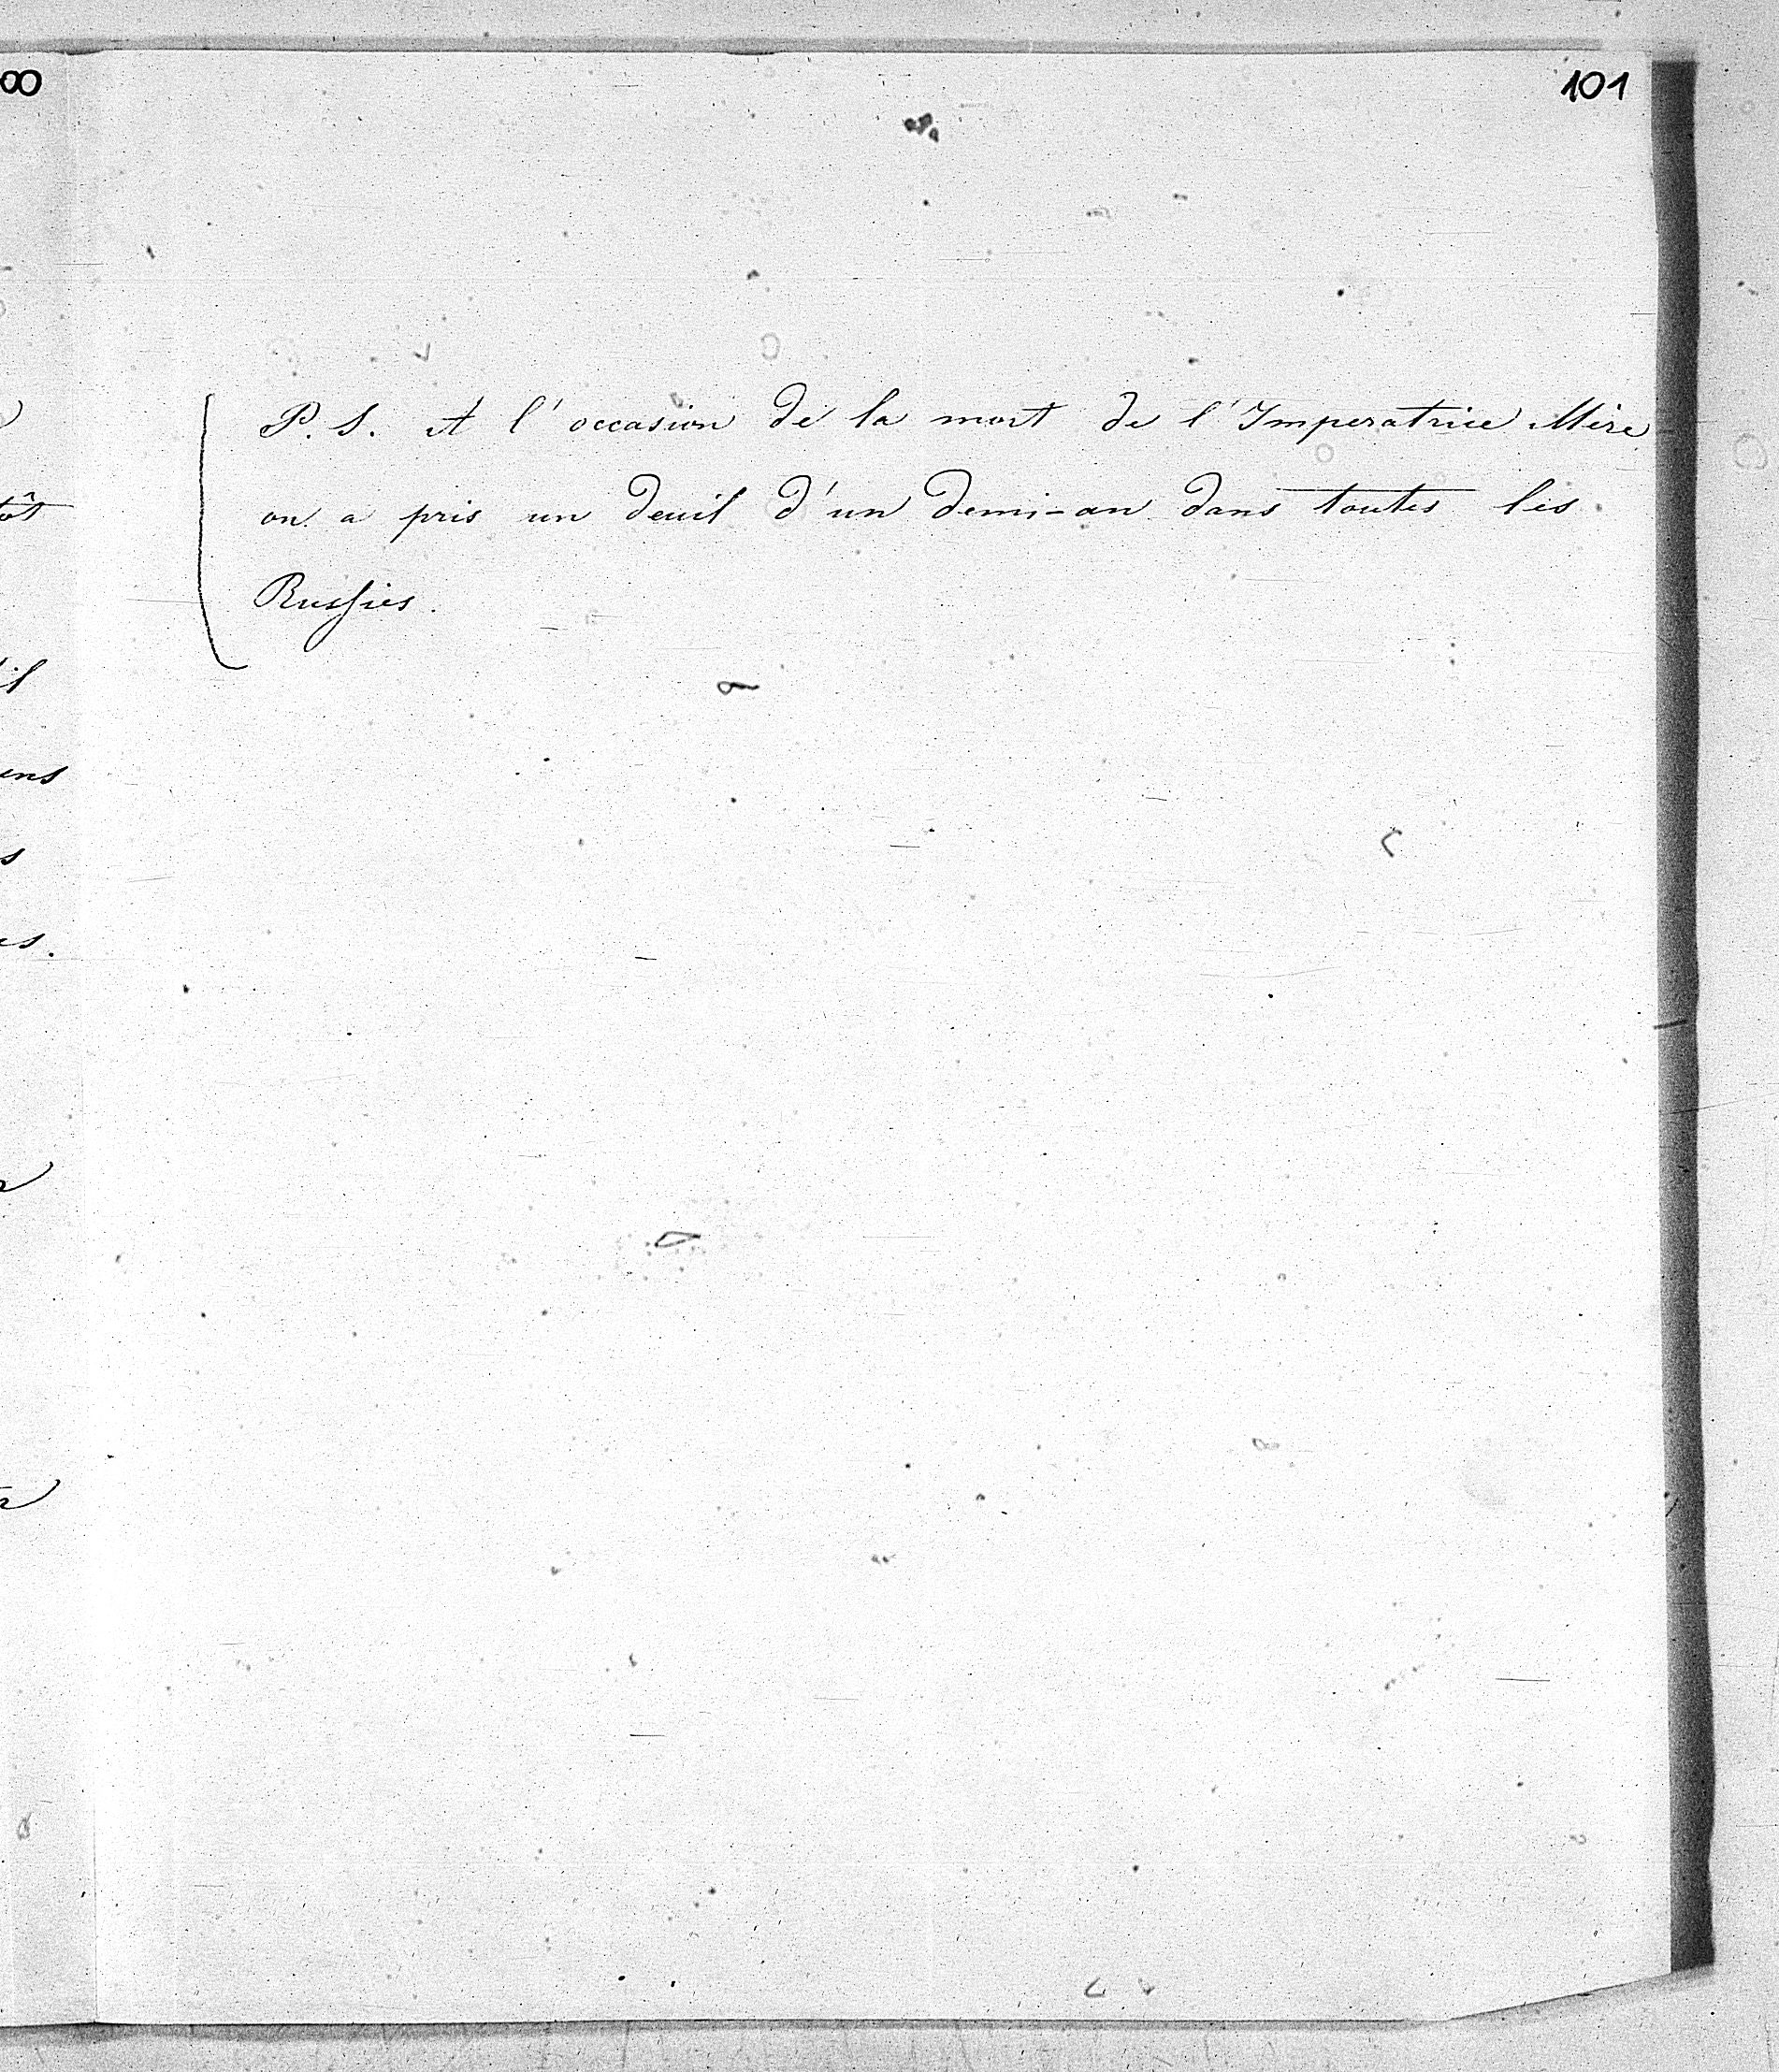 101
P. S. A l'occasion de la mort de l'Imperatrice Mère
on a pris un deuil d'un demi-an dans toutes les
Russies.